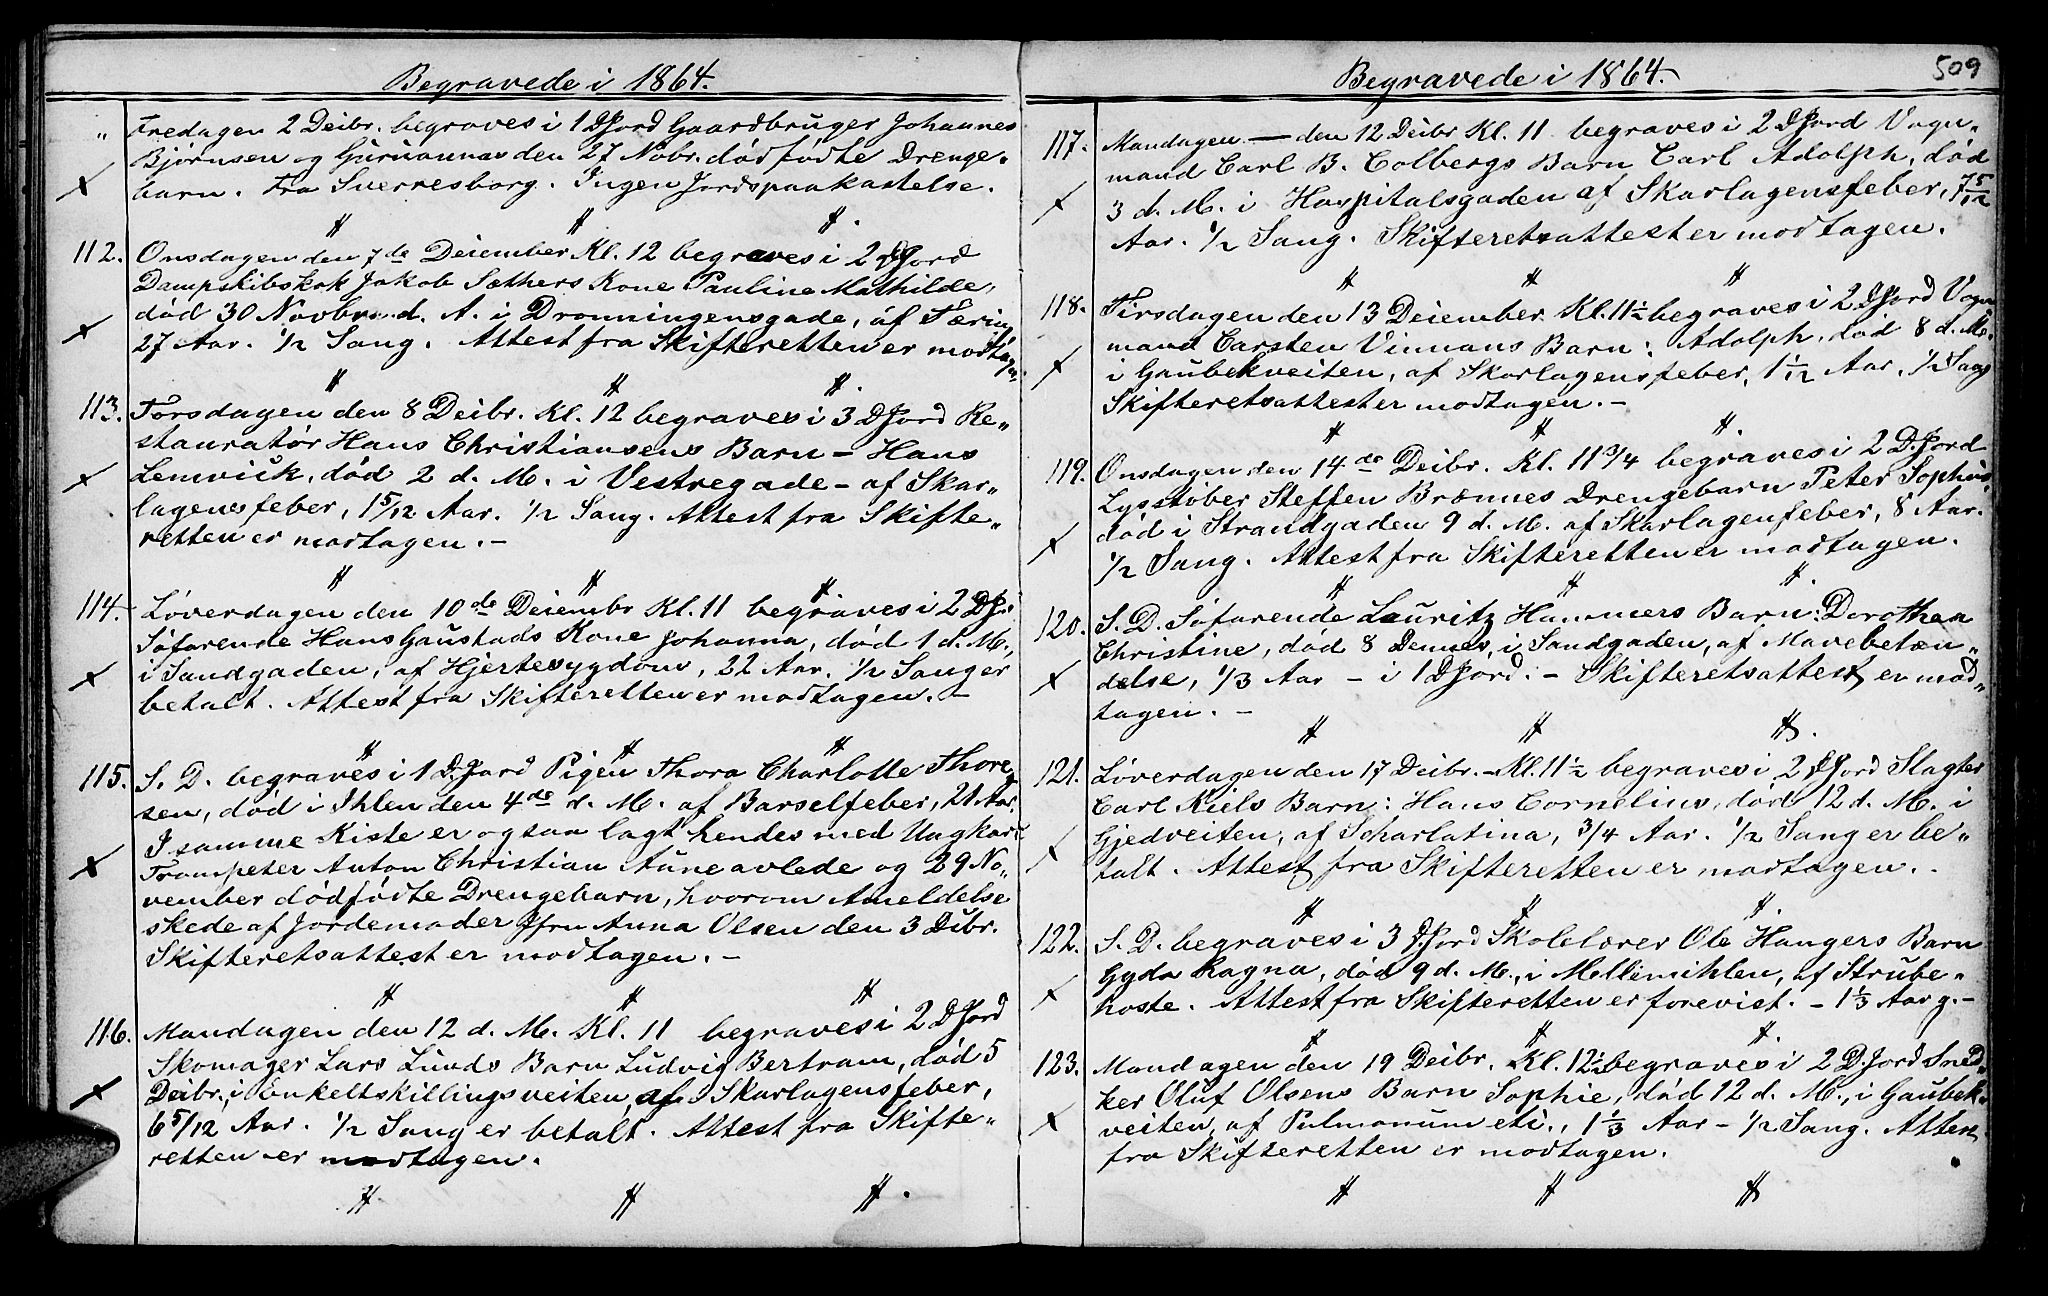 Begravede i 1864.
" Fredagen 2 Deibr. begraves i 1 D Jord Gaardbruger Johannes
Bjørnsen og Guruannas den 27 Nobr. dødfødte Drenge-
x barn. Fra Sverresborg. Ingen Jordspaakastelse.
112. Onsdagen den 7de Deiember Kl. 12 begraves i 2 D Jord
Dampskibskok Jakob Sæthers Kone Pauline Mathilde,
død 30 Novbr. d. A. i Dronningensgade, af Tæring
x 27 Aar. 1/2 Sang. Attest fra Skifteretten er modtagen.
113. Torsdagen den 8 Deibr. Kl. 12 begraves i 3 D Jord Re„
stauratør Hans Christiansens Barn – Hans
x Lemvick, død 2 d. M. i Vestregade – af Skar„
lagensfeber, 1 5/12 Aar. 1/2 Sang. Attest fra Skifte„
retten er modtagen. –
114. Løverdagen den 10de Deiembr Kl. 11 begraves i 2 D J.
Søfarende Hans Gaustads Kone Johanna, død 1 d. M.,
x i Sandgaden, af Hjertesygdom, 22 Aar. 1/2 Sang er
betalt. Attest fra Skifteretten er modtagen. –
115. S. D. begraves i 1 D. Jord Pigen Thora Charlotte Thore„
sen, død i Ihlen den 4de d. M. af Barselfeber, 21 Aar.
I samme Kiste er ogsaa lagt hendes med Ungkarl
x Trompeter Anton Christian Aune avlede og 29 No„
vember dødfødte Drengebarn, hvorom Anmeldelse
skede af Jordemoder Jfru Anna Olsen den 3 Dibr.
Skifteretsattest er modtagen. –
116. Mandagen den 12 d. M. Kl. 11 begraves i 2 D Jord
Skomager Lars Lunds Barn Ludvig Bertram, død 5
x Deibr., i Enkeltskillingsveiten, af Skarlagensfeber,
6 5/12 Aar. 1/2 Sang er betalt. Attest fra Skifte„
retten er modtagen.
Begravede i 1864.
509
117. Mandagen – den 12 Deibr Kl. 11 begraves i 2 D Jord Vogn„
mand Carl B. Colbergs Barn Carl Adolph, død
x 3 d. M. i Hospitalsgaden af Skarlagensfeber, 7 5/12
Aar. 1/2 Sang. Skifteretsattest er modtagen.
118. Tirsdagen den 13 Deiember Kl. 11 1/2 begraves i 2 D Jord Vogn
mand Carsten Vinnans Barn: Adolph, død 8 d. M.
x i Gaubekveiten, af Skarlagensfeber, 1 1/12 Aar, 1/2 Sang
Skifteretsattest er modtagen. –
119. Onsdagen den 14de Deibr. Kl. 11 3/4 begraves i 2 D. Jord
Lysstøber Steffen Brænnes Drengebarn Peter Sophus,
x død i Strandgaden 9 d. M. af Skarlagenfeber, 8 Aar.
1/2 Sang. Attest fra Skifteretten er modtagen.
120. S. D. Søfarende Lauritz Hammers Barn: Dorothea
Christine, død 8 Dennes, i Sandgaden, af Mavebetæn„
x delse, 1/3 Aar – i 1 D Jord. – Skifteretsattest er mod„
tagen. –
121. Løverdagen den 17 Deibr. – Kl. 11 1/2 begraves i 2 D Jord Slagter
Carl Kiels Barn: Hans Cornelius, død 12 d. M. i
x Gjedveiten, af Scharlatina, 3/4 Aar. 1/2 Sang er be„
talt. Attest fra Skifteretten er modtagen.
122. S. D. begraves i 3 D. Jord Skolelærer Ole Haugers Barn
x Gyda Ragna, død 9 d. M., i Mellemihlen, af Strube„
hoste. Attest fra Skifteretten er forevist. – 1 1/3 Aar g. –
123. Mandagen den 19 Deibr. Kl. 12 1/2 begraves i 2 D. Jord Sned„
ker Oluf Olsens Barn Sophie, død 12 d. M., i Gaubek„
x veiten, af Pulmonum eti., 1 1/3 Aar – 1/2 Sang. Attest
fra Skifteretten er modtagen.